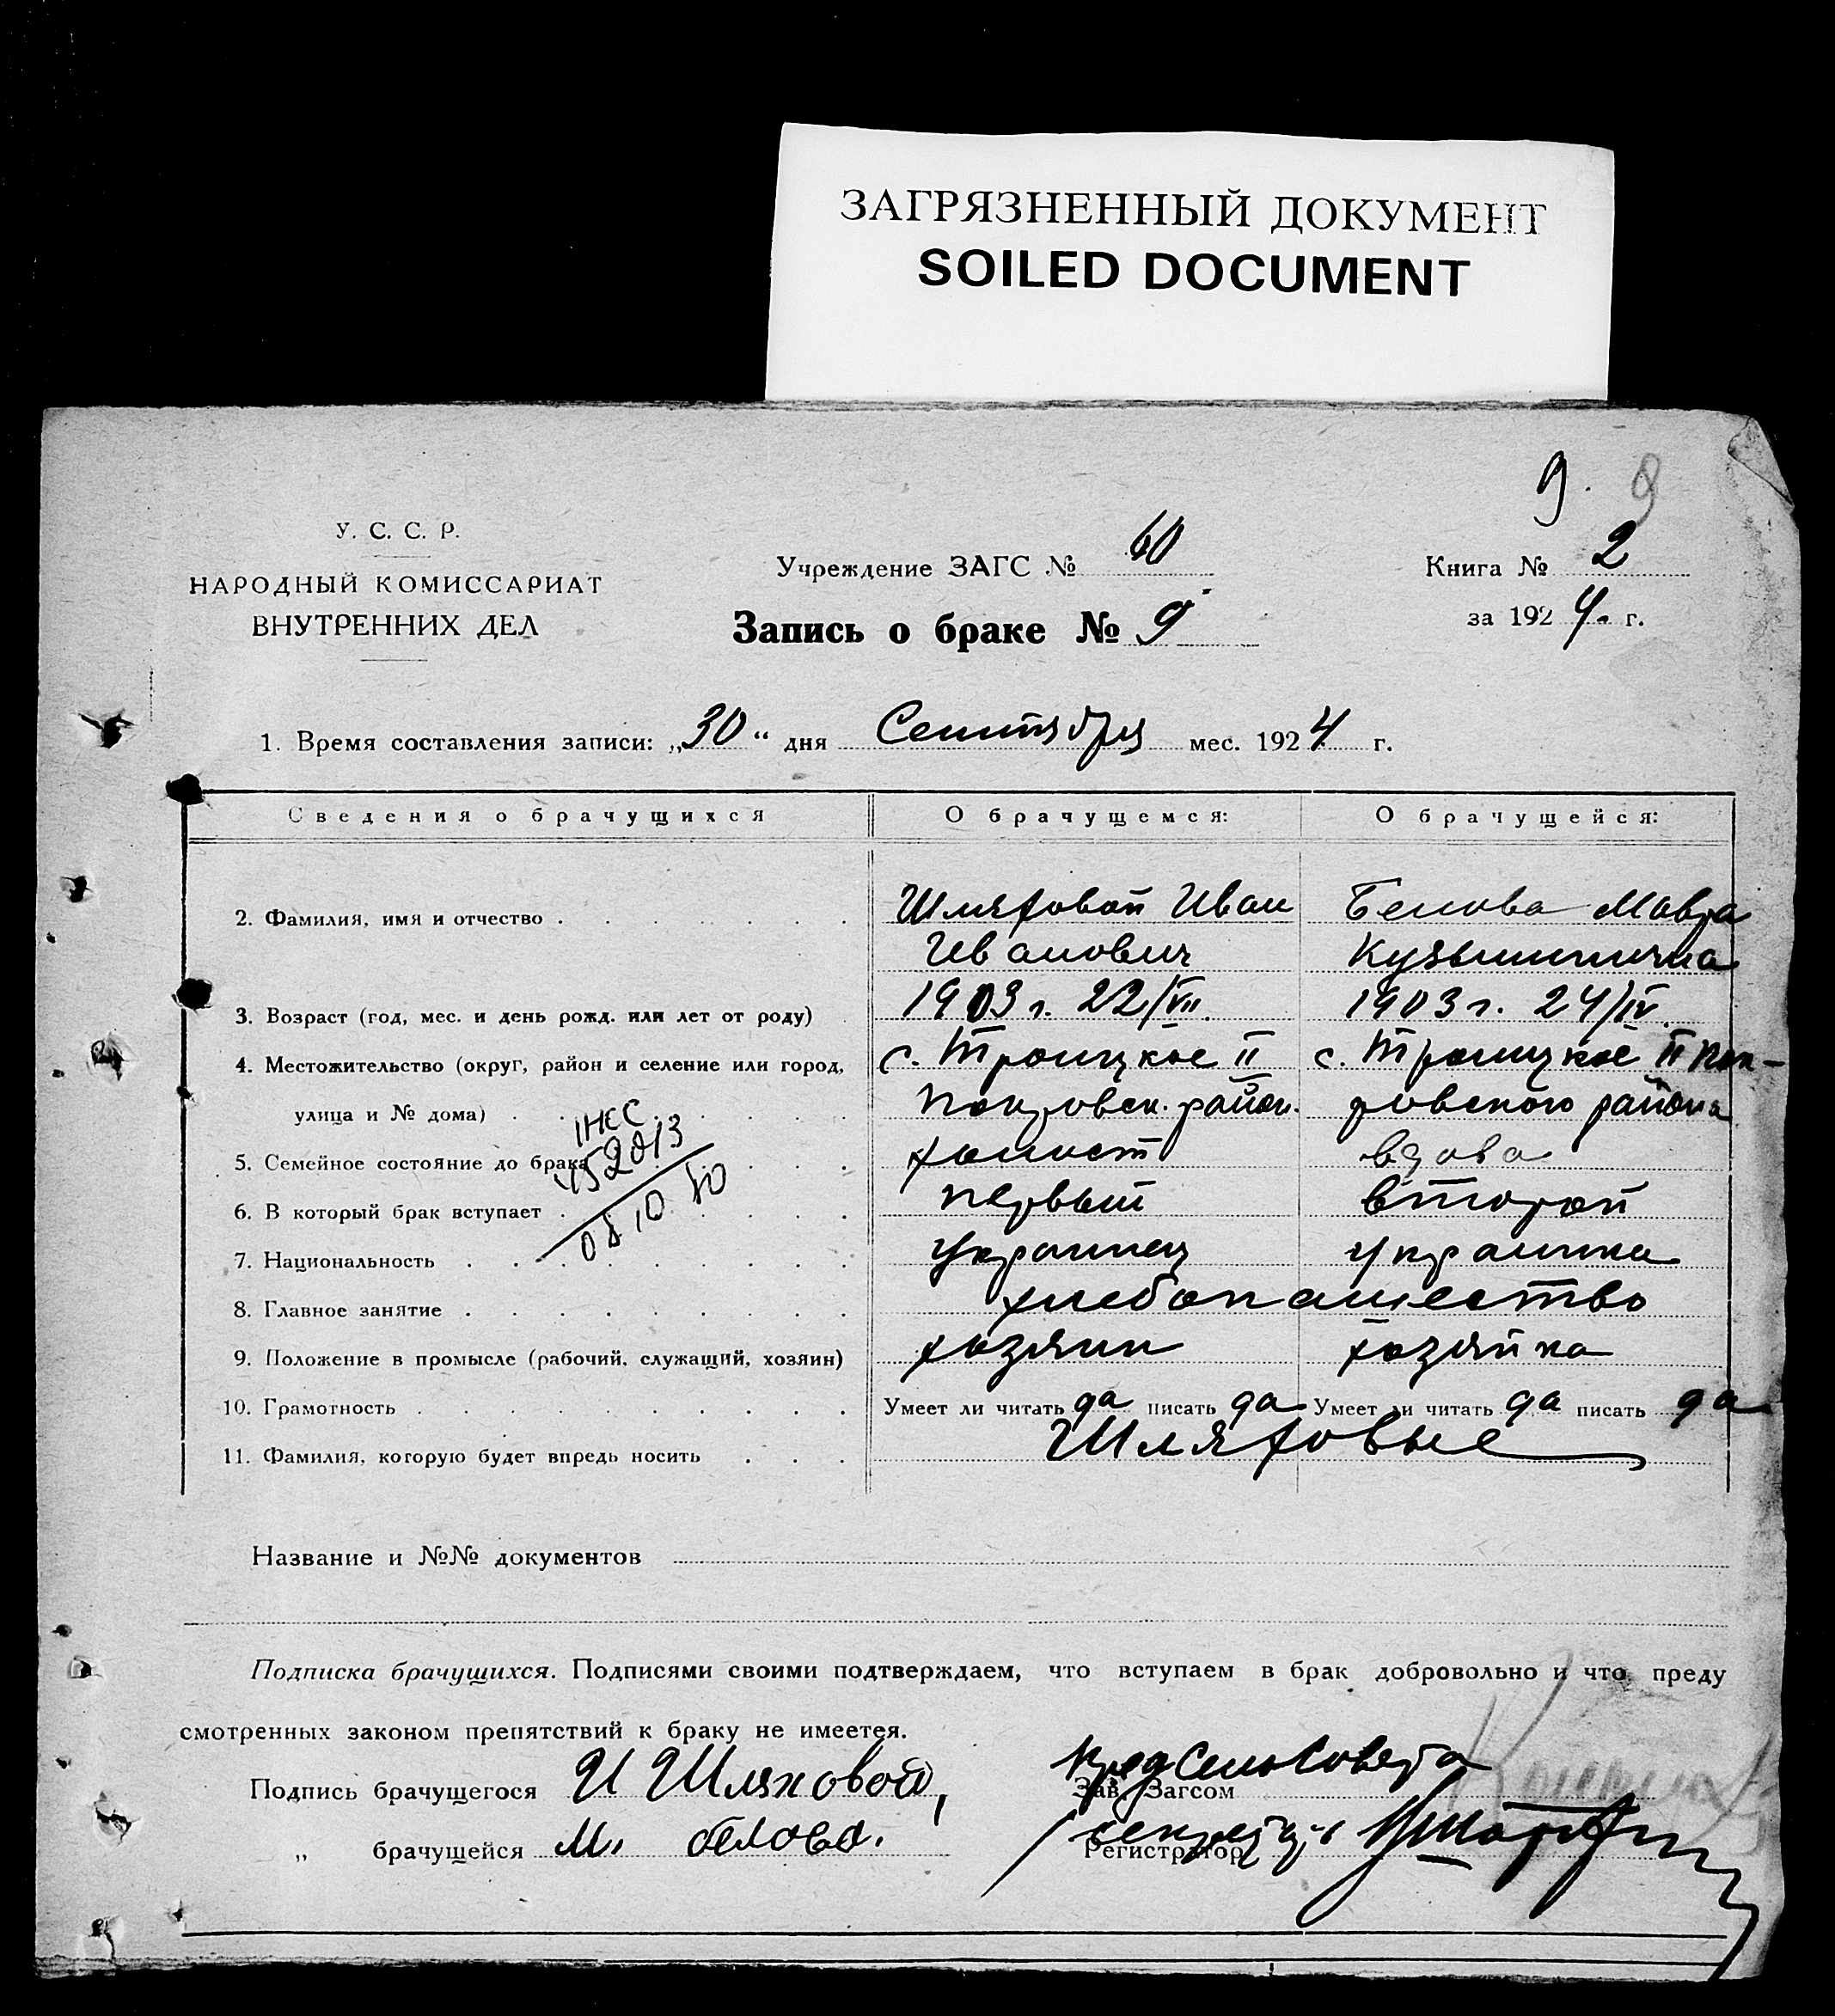 ЗАГРЯЗНЕННЫЙ ДОКУМЕНТ
SOILED DOCUMENT
9. 9
У. С. С. Р.
НАРОДНЫЙ КОМИССАРИАТ
ВНУТРЕННИХ ДЕЛ
Учреждение ЗАГС № 60
Запись о браке № 9
Книга № 2
за 1924. г.
1. Время составления записи: „30“ дня Сентября мес. 1924 г.
Сведения о брачущихся О брачущемся: О брачущейся:
2. Фамилия, имя и отчество Шляховой Иван Белова Мавра
Иванович Кузьминична
3. Возраст (год, мес. и день рожд. или лет от роду) 1903 г. 22/VII. 1903 г. 24/IV.
4. Местожительство (округ, район и селение или город, с. Троицкое II с. Троицкое II Пок-
улица и № дома) Покровск. район. ровского района
5. Семейное состояние до брака холост вдова
6. В который брак вступает первый второй
7. Национальность украинец украинка
8. Главное занятие хлебопашество
9. Положение в промысле (рабочий, служащий, хозяин) хозяин хозяйка
10. Грамотность Умеет ли читать да писать да Умеет ли читать да писать да
11. Фамилия, которую будет впредь носить Шляховые
1НСС
452013
08 10 80
Название и №№ документов
Подписка брачущихся. Подписями своими подтверждаем, что вступаем в брак добровольно и что преду
смотренных законом препятствий к браку не имеется.
Подпись брачущегося И Шляховой, Предсельсовета
Зав. Загсом
„ брачущейся М. белова. Секретарь
Регистратор